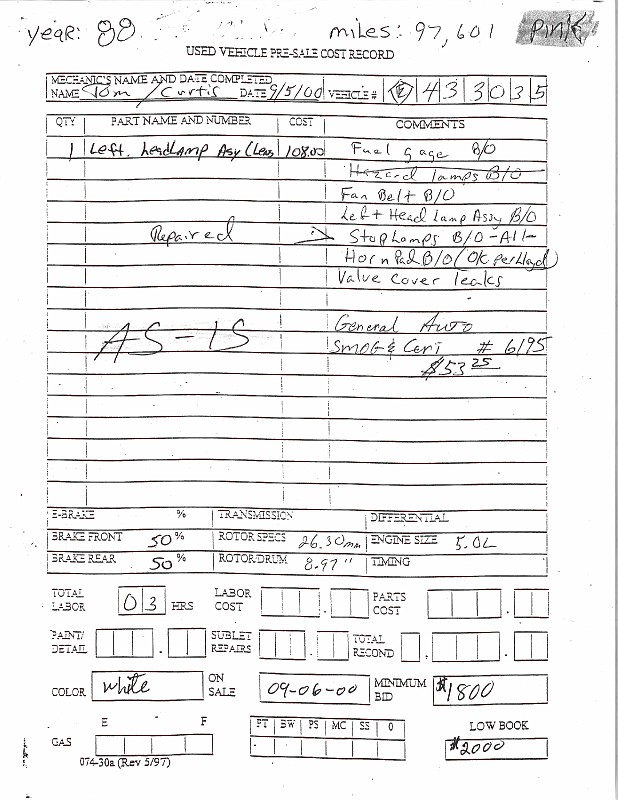 year: 88 miles: 97,601 pink
USED VEHICLE PRE-SALE COST RECORD
MECHANIC'S NAME AND DATE COMPLETED
NAME Tom / Curtis DATE 9/5/00 VEHICLE # E 433035
QTY PART NAME AND NUMBER COST COMMENTS
1 Left. headlamp Asy (Lens 108.00 Fuel gage B/O
Hazard lamps B/O
Fan Belt B/O
Left Head lamp Assy B/O
Repaired Stop Lamps B/O - All
Horn Pad B/O (OK per Lloyd)
Valve Cover leaks
General Auto
AS-IS SMOG & Cert # 6195
$53 25
E-BRAKE % TRANSMISSION DIFFERENTIAL
BRAKE FRONT 50 % ROTOR SPECS 26.30mm ENGINE SIZE 5.0L
BRAKE REAR 50 % ROTOR/DRUM 8.97" TIMING
TOTAL LABOR 03 HRS LABOR COST . PARTS COST .
PAINT/ DETAIL . SUBLET REPAIRS . TOTAL RECOND .
COLOR white ON SALE 09-06-00 MINIMUM BID $1800
E - F PT BW PS MC SS 0 LOW BOOK
GAS $2000
074-30a (Rev 5/97)